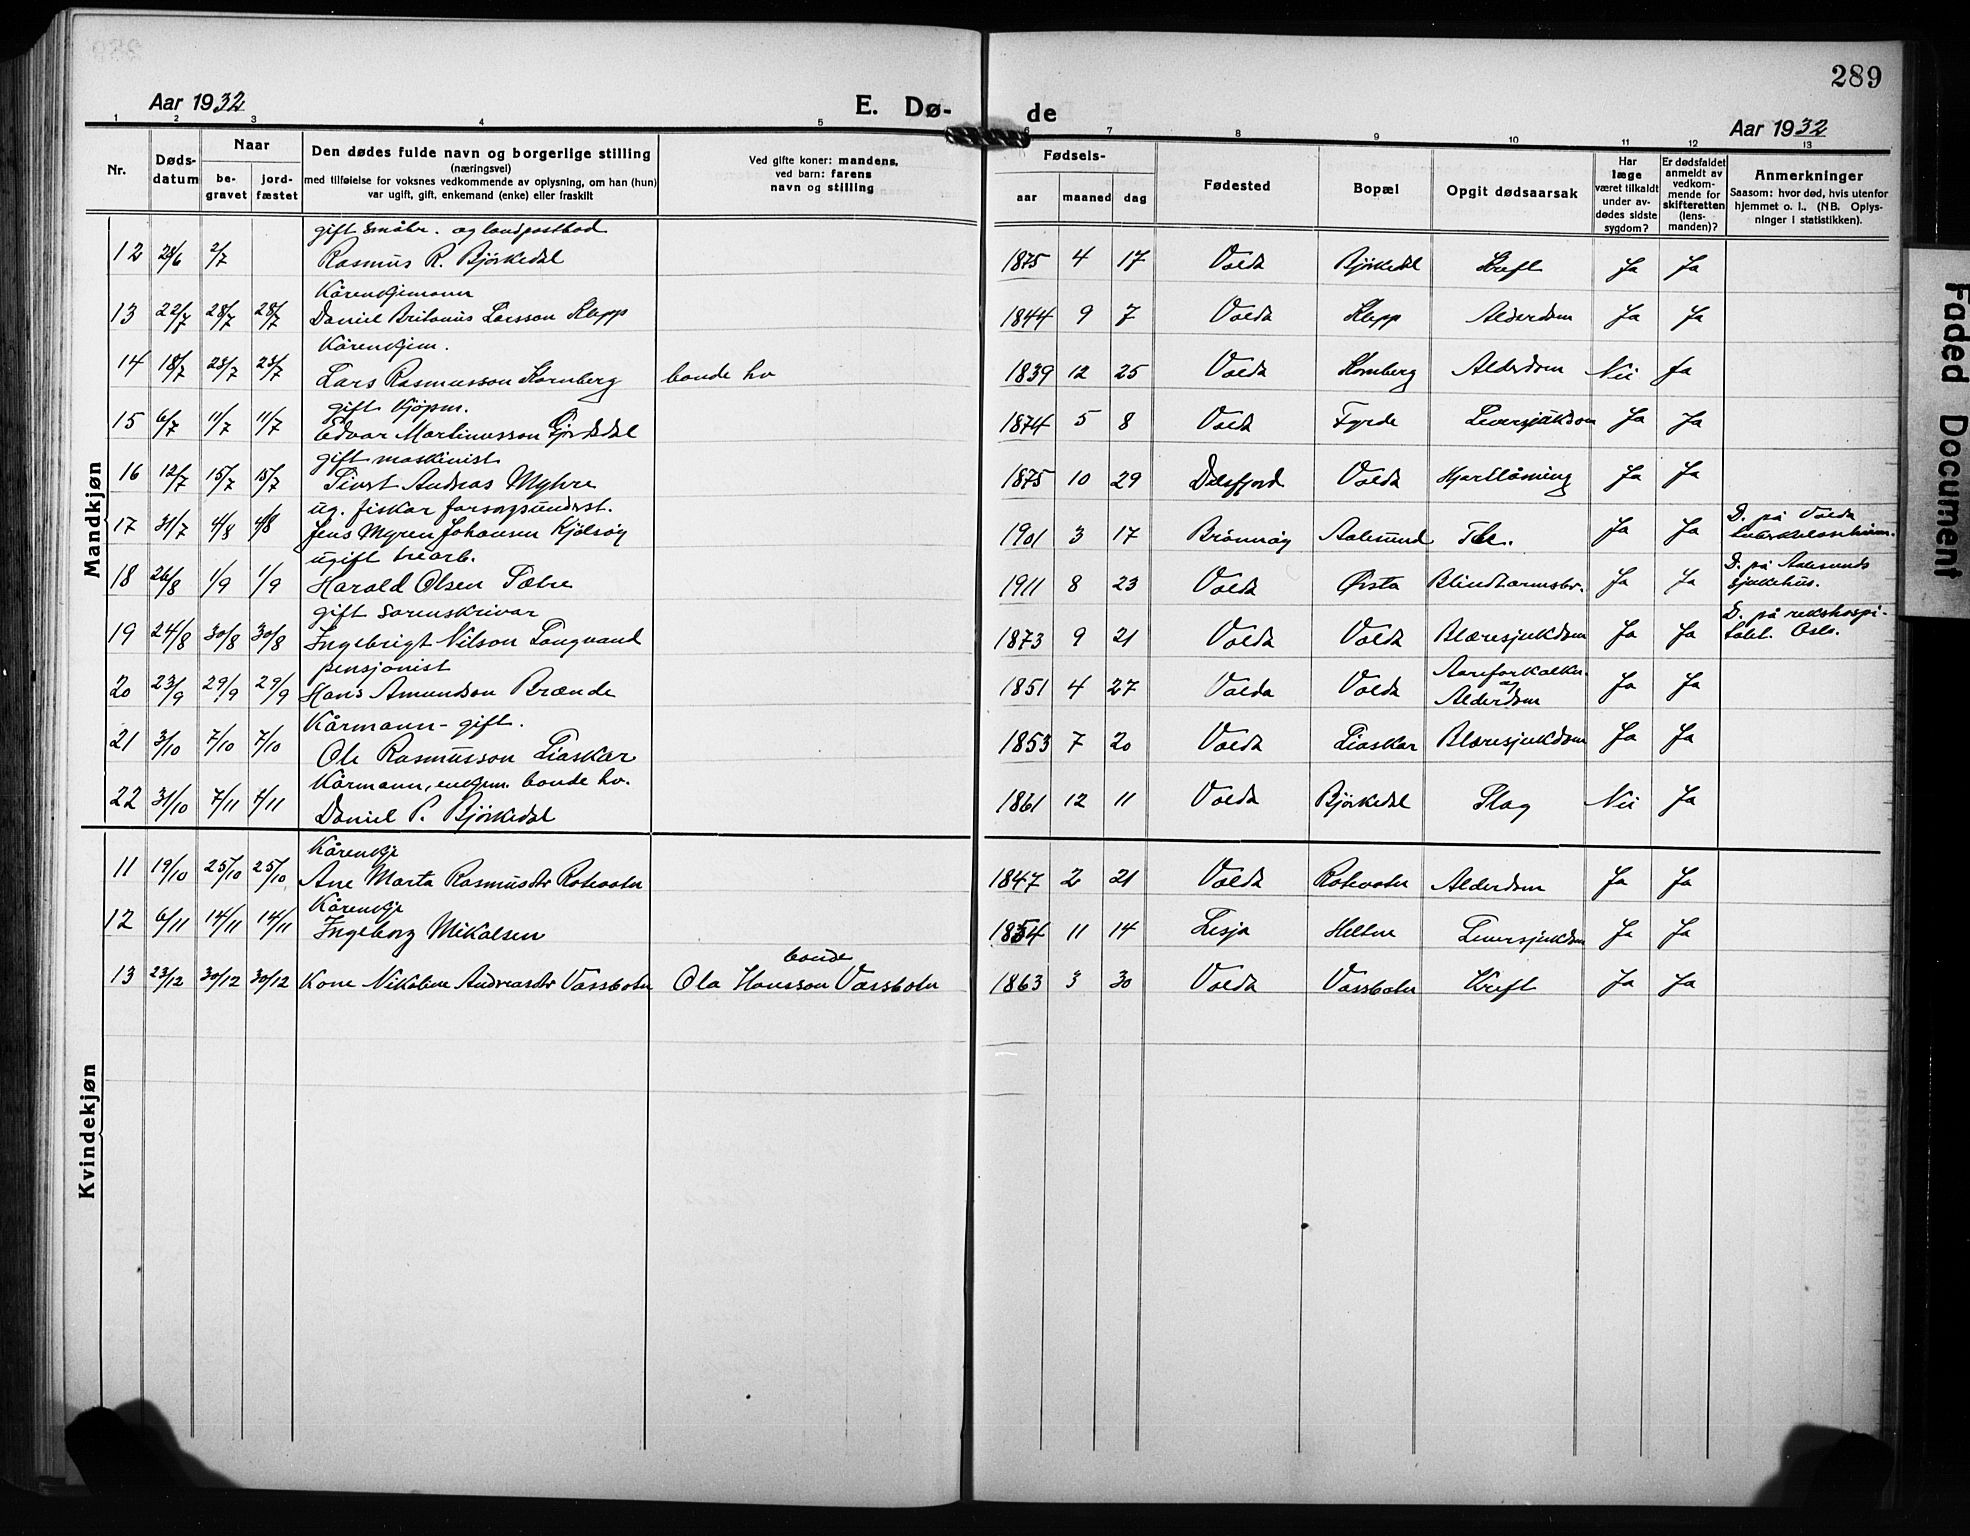 289
Aar 1932
E. Dø-
de
Aar 1932
1 2 3 4 5 6 7 8 9 10 11 12 13
Nr.
Døds-
datum
Naar
be-
gravet
jord-
fæstet
Den dødes fulde navn og borgerlige stilling
(næringsvei)
med tilføielse for voksnes vedkommende av oplysning, om han (hun)
var ugift, gift, enkemand (enke) eller fraskilt
Ved gifte koner: mandens,
ved barn: farens
navn og stilling
Fødsels-
aar
maaned
dag
Fødested
Bopæl
Opgit dødsaarsak
Har
læge
været tilkaldt
under av-
dødes sidste
sygdom?
Er dødsfaldet
anmeldt av
vedkom-
mende for
skifteretten
(lens-
manden)?
Anmerkninger
Saasom: hvor død, hvis utenfor
hjemmet o. l., (NB. Oplys-
ninger i statistikken).
Mandkjøn
gift småbr. og landpostbod
12 28/6 2/7 Rasmus R. Bjørkedal 1875 4 17 Volda Bjørkedal Kreft Ja Ja
Kårenkjemann
13 22/7 28/7 28/7 Daniel Britanus Larsson Klepp 1844 9 7 Volda Klepp Alderdom Ja Ja
Kårenkjem.
14 18/7 23/7 23/7 Lars Rasmusson Kornberg bonde hv 1839 12 25 Volda Kornberg Alderdom Nei Ja
gift kjøpm.
15 6/7 11/7 11/7 Edvar Martinusson Fjordsdal 1874 5 8 Volda Fyrde Leversjukdom Ja Ja
gift maskinist
16 12/7 15/7 15/7 Sivert Andreas Myhre 1875 10 29 Dalsfjord Volda Hjartlåming Ja Ja
ug. fiskar forsorgsunderst.
17 31/7 4/8 4/8 Jens Myren Johansen Kjølsøy 1901 3 17 Brønnøy Aalesund Tbc. Ja Ja D. på Volda
tuberkuloseheim.
ugift trearb.
18 26/8 1/9 1/9 Harald Olsen Sætre 1911 8 23 Volda Ørsta Blindtarmsbr. Ja Ja D. på Aalesunds
sjukehus.
gift sorenskrivar
19 24/8 30/8 30/8 Ingebrigt Nilson Langvand 1873 9 21 Volda Volda Blæresjukdom Ja Ja D. på rekshospi-
talet Oslo.
pensjonist
20 23/9 29/9 29/9 Hans Amundson Brænde 1851 4 27 Volda Volda Aareforkalkn.
og
Alderdom Ja Ja
Kårmann - gift.
21 3/10 7/10 7/10 Ole Rasmusson Liaskar 1853 7 20 Volda Liaskar Blæresjukdom Ja Ja
Kårmann, enkjem. bonde hv.
22 31/10 7/11 7/11 Daniel P. Bjørkedal 1861 12 11 Volda Bjørkedal Slag Nei Ja
Kvindekjøn
Kårenkje
11 19/10 25/10 25/10 Ane Marta Rasmusdtr Rotevatn 1847 2 21 Volda Rotevatn Alderdom Ja Ja
Kårenkje
12 6/11 14/11 14/11 Ingeborg Mikalsen 1854 11 14 Lesja Heltne Leversjukdom Ja Ja
bonde
13 23/12 30/12 30/12 Kone Nikoline Andreasdtr Vassbotn Ola Hansson Vassbotn 1863 3 30 Volda Vassbotn Kreft Ja Ja
Faded Document